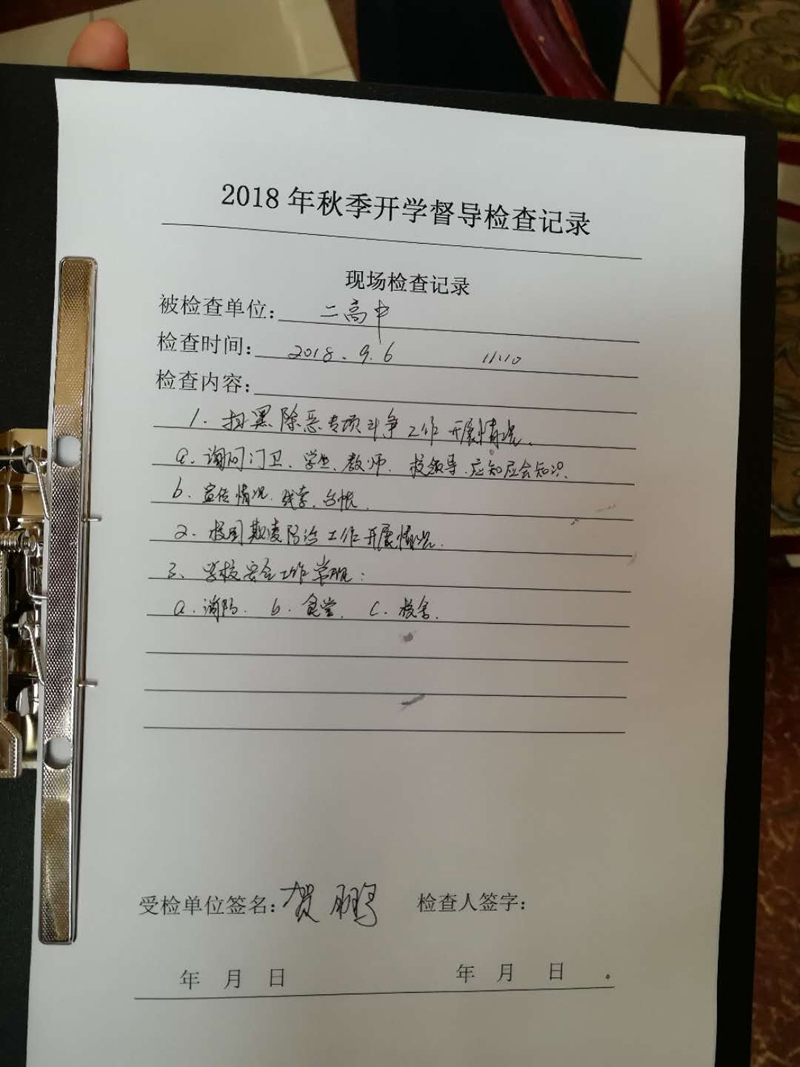 2018年秋季开学督导检查记录
现场检查记录
被检查单位: 二高中
检查时间: 2018.9.6 11:10
检查内容:
1. 扫黑除恶专项斗争工作开展情况.
a. 询问门卫、学生、教师、校领导.应知应会知识.
b. 宣传情况.线索.台帐.
2. 校园欺凌防治工作开展情况.
3. 学校安全工作常规:
a. 消防. b. 食堂. c. 校舍.
受检单位签名: 贺鹏 检查人签字:
年 月 日 年 月 日